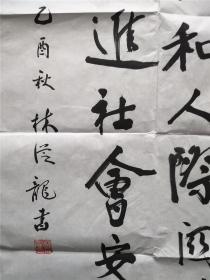 和人際
進社會安
乙酉秋 林從龍書